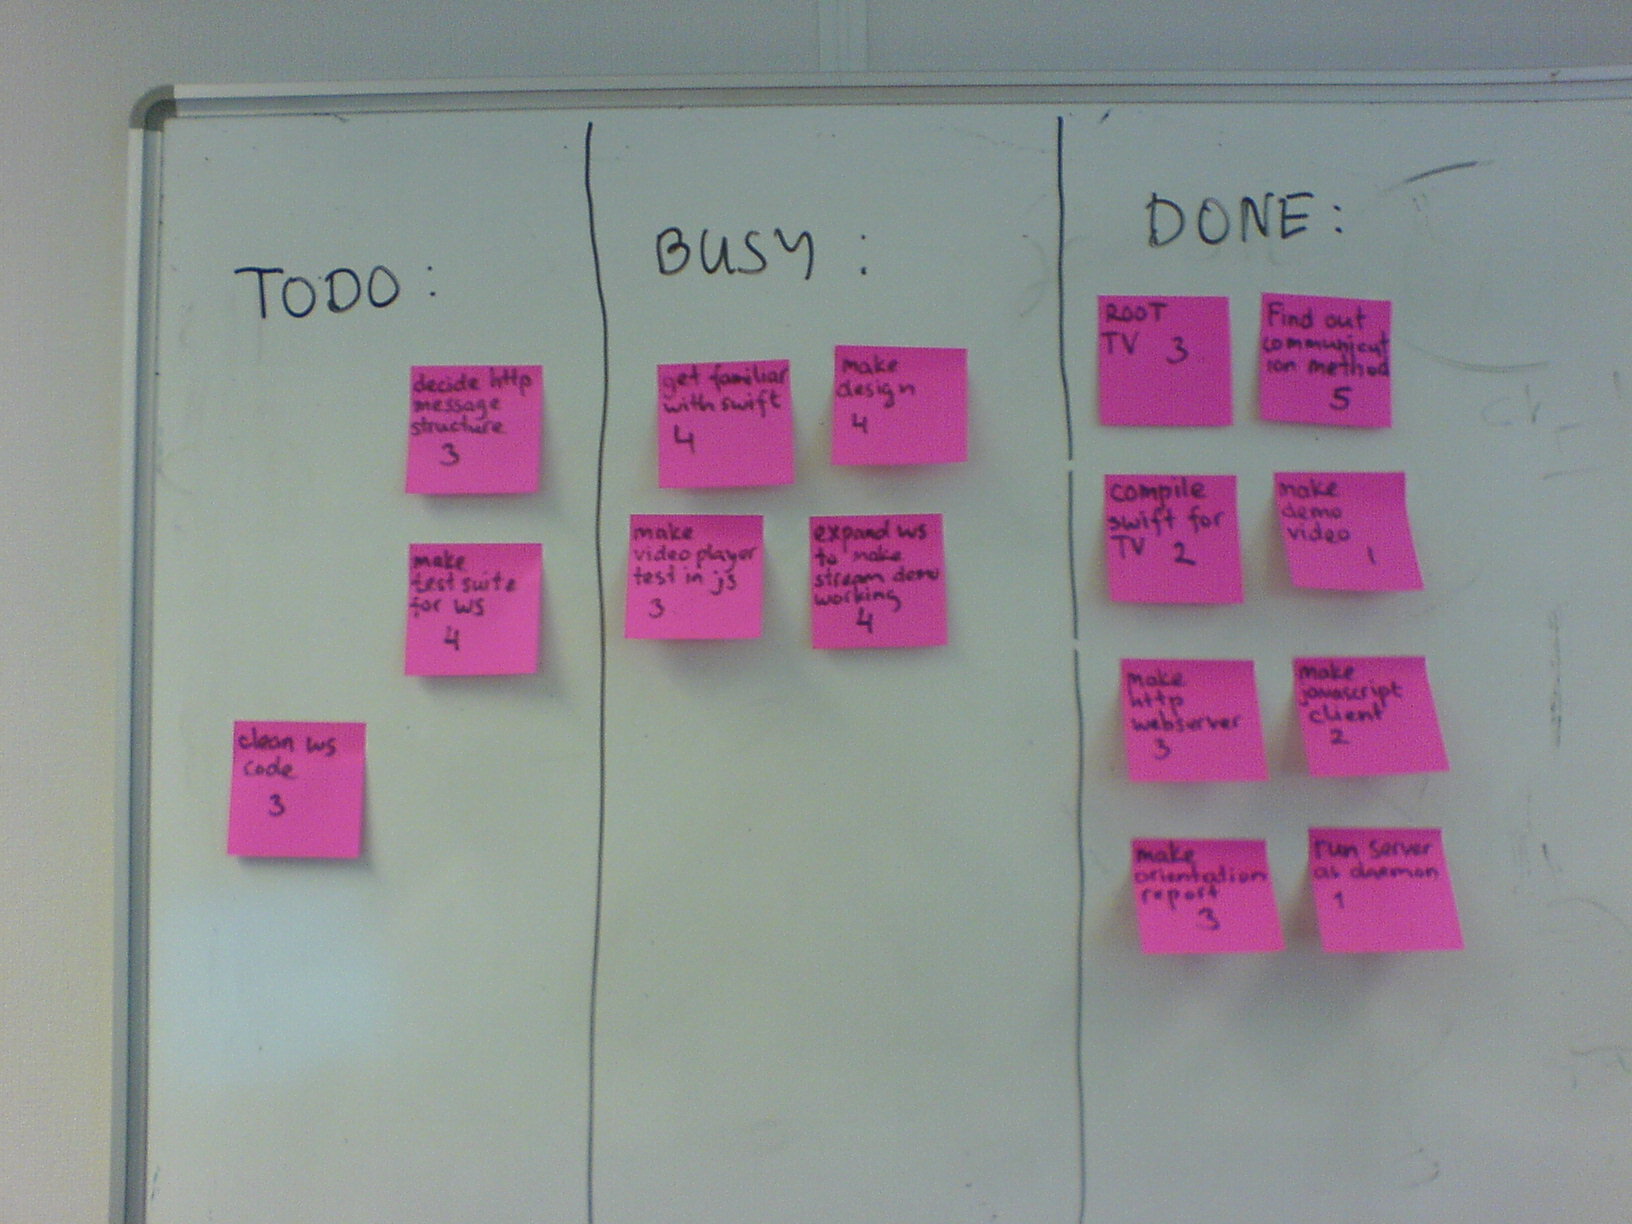 TODO:
decide http
message
structure
3
make
test suite
for ws
4
clean ws
code
3
BUSY:
get familiar
with swift
4
make
design
4
make
video player
test in js
3
expand ws
to make
stream demo
working
4
DONE:
ROOT
TV 3
Find out
communicat
ion method
5
compile
swift for
TV 2
make
demo
video
1
make
http
webserver
3
make
javascript
client
2
make
orientation
report
3
run server
as daemon
1